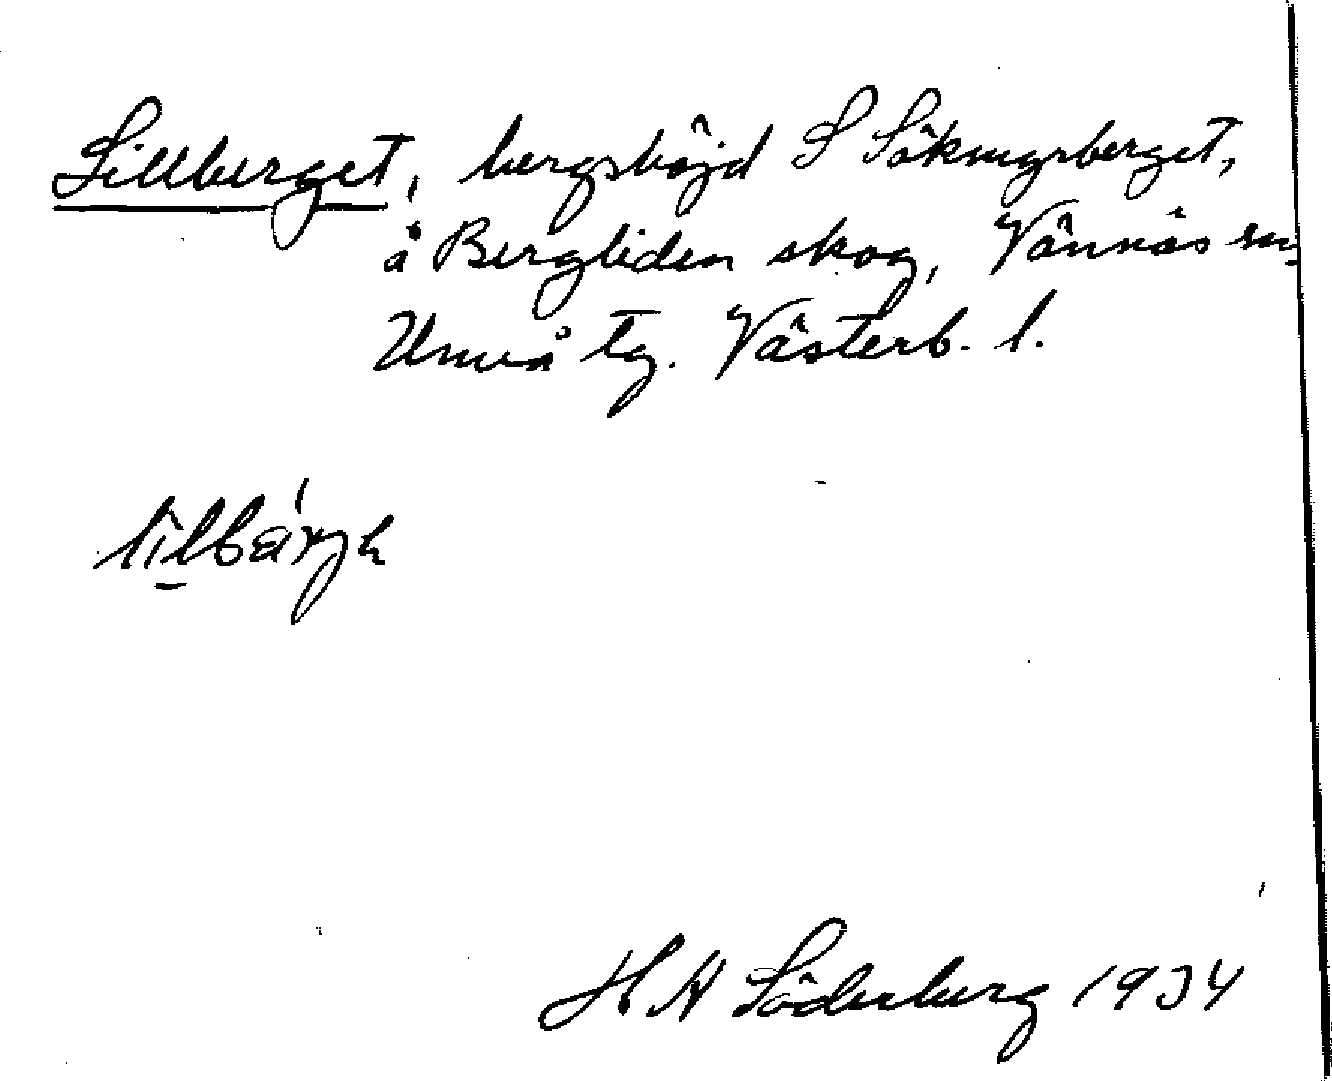 Lillberget, bergshöjd S Sökningsberget,
å Bergliden skog, Vännäs sn
Umeå tg. Västerb. l.
H A Söderberg 1934